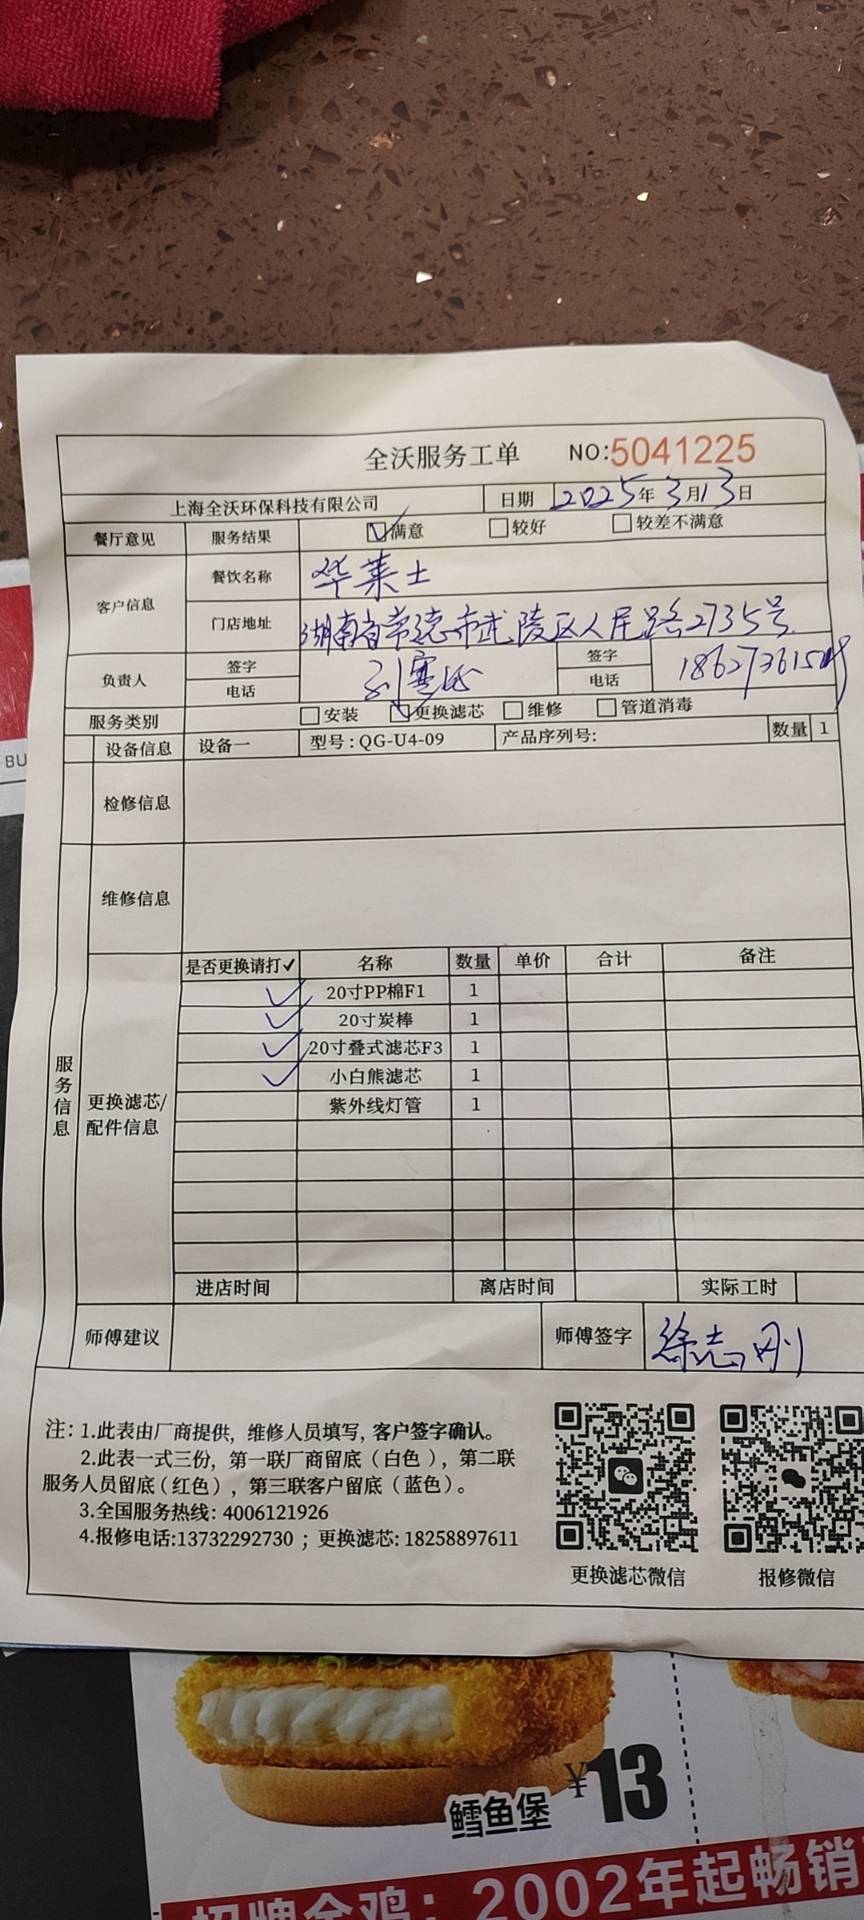 全沃服务工单 NO:5041225
上海全沃环保科技有限公司 日期 2025年3月13日
餐厅意见 服务结果 ☑满意 □较好 □较差不满意
客户信息 餐饮名称 华莱士
门店地址 湖南省常德市武陵区人民路2735号
负责人 签字 签字
电话 电话
服务类别 □安装 ☑更换滤芯 □维修 □管道消毒
设备信息 设备一 型号:QG-U4-09 产品序列号: 数量 1
检修信息
维修信息
服务信息
更换滤芯/配件信息
是否更换请打✓ 名称 数量 单价 合计 备注
✓ 20寸PP棉F1 1
✓ 20寸炭棒 1
✓ 20寸叠式滤芯F3 1
✓ 小白熊滤芯 1
紫外线灯管 1
进店时间 离店时间 实际工时
师傅建议 师傅签字 徐志刚
注: 1.此表由厂商提供, 维修人员填写, 客户签字确认。
2.此表一式三份, 第一联厂商留底（白色）, 第二联
服务人员留底（红色）, 第三联客户留底（蓝色）。
3.全国服务热线: 4006121926
4.报修电话:13732292730 ; 更换滤芯: 18258897611
更换滤芯微信 报修微信
BU
鳕鱼堡 ¥13
招牌全鸡: 2002年起畅销